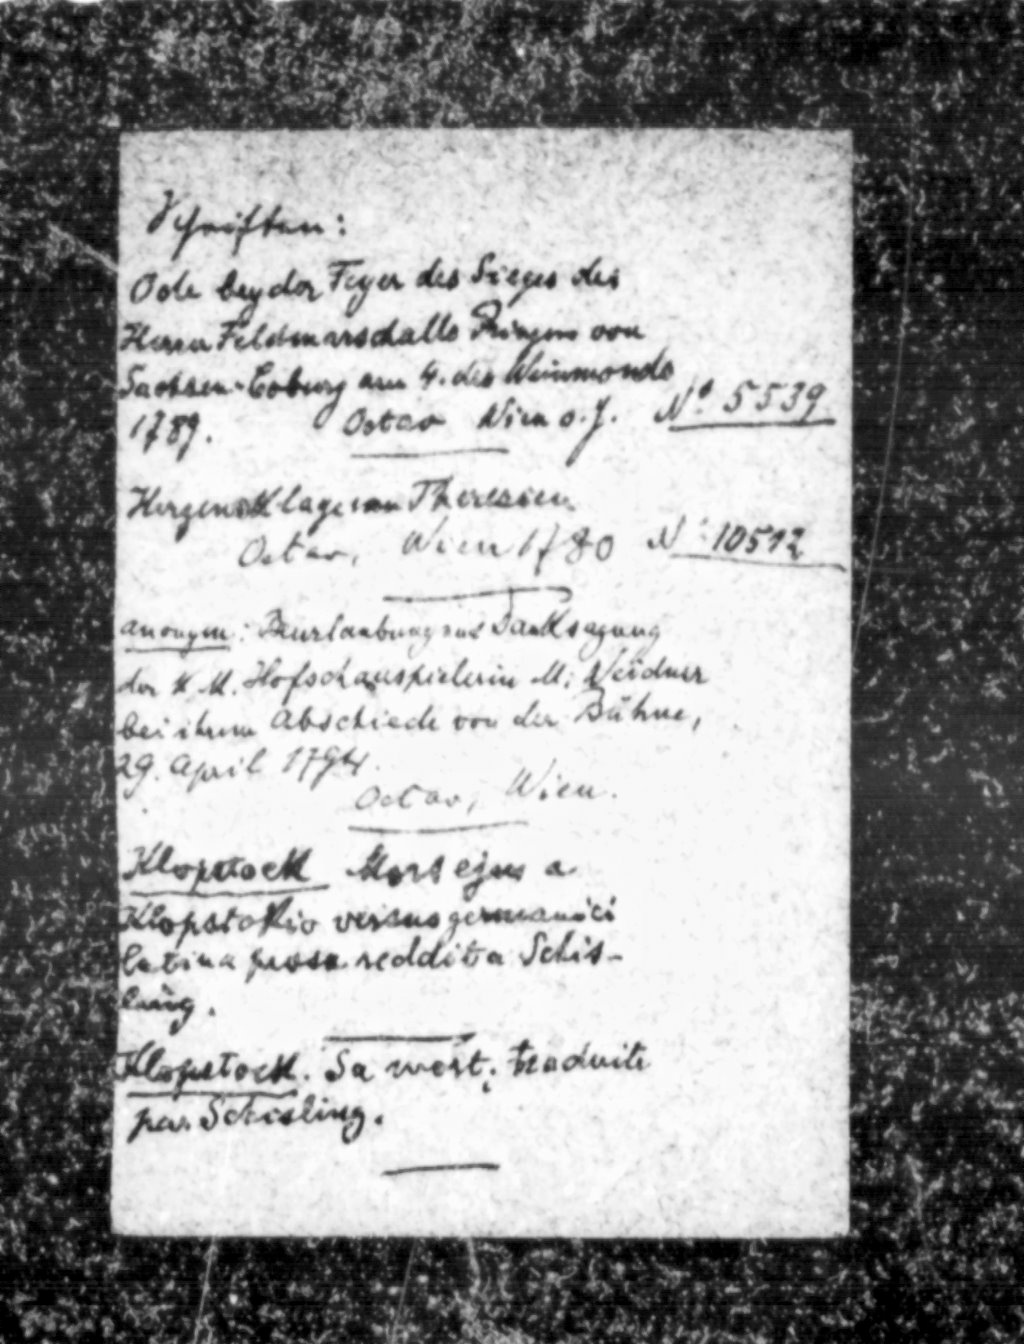 Schriften:
Ode bey der Feyer des Sieges des
Herrn Feldmarschalls Prinzen von
Sachsen-Coburg am 4. des Weinmonds
1789. Octav Wien o. J. No. 5539
Herzens Klage um Theresien
Octav, Wien 1780 No. 10512
anonym: Beurlaubung und Danksagung
der K. K. Hofschauspielerin M. Weidner
bei ihrem Abschiede von der Bühne,
29. April 1794.
Octav, Wien.
Klopstock Mors ejus a
Klopstokio versus germanici
latina prosa reddita Schis-
ling.
Klopstock. Sa mort, traduite
par Schisling.